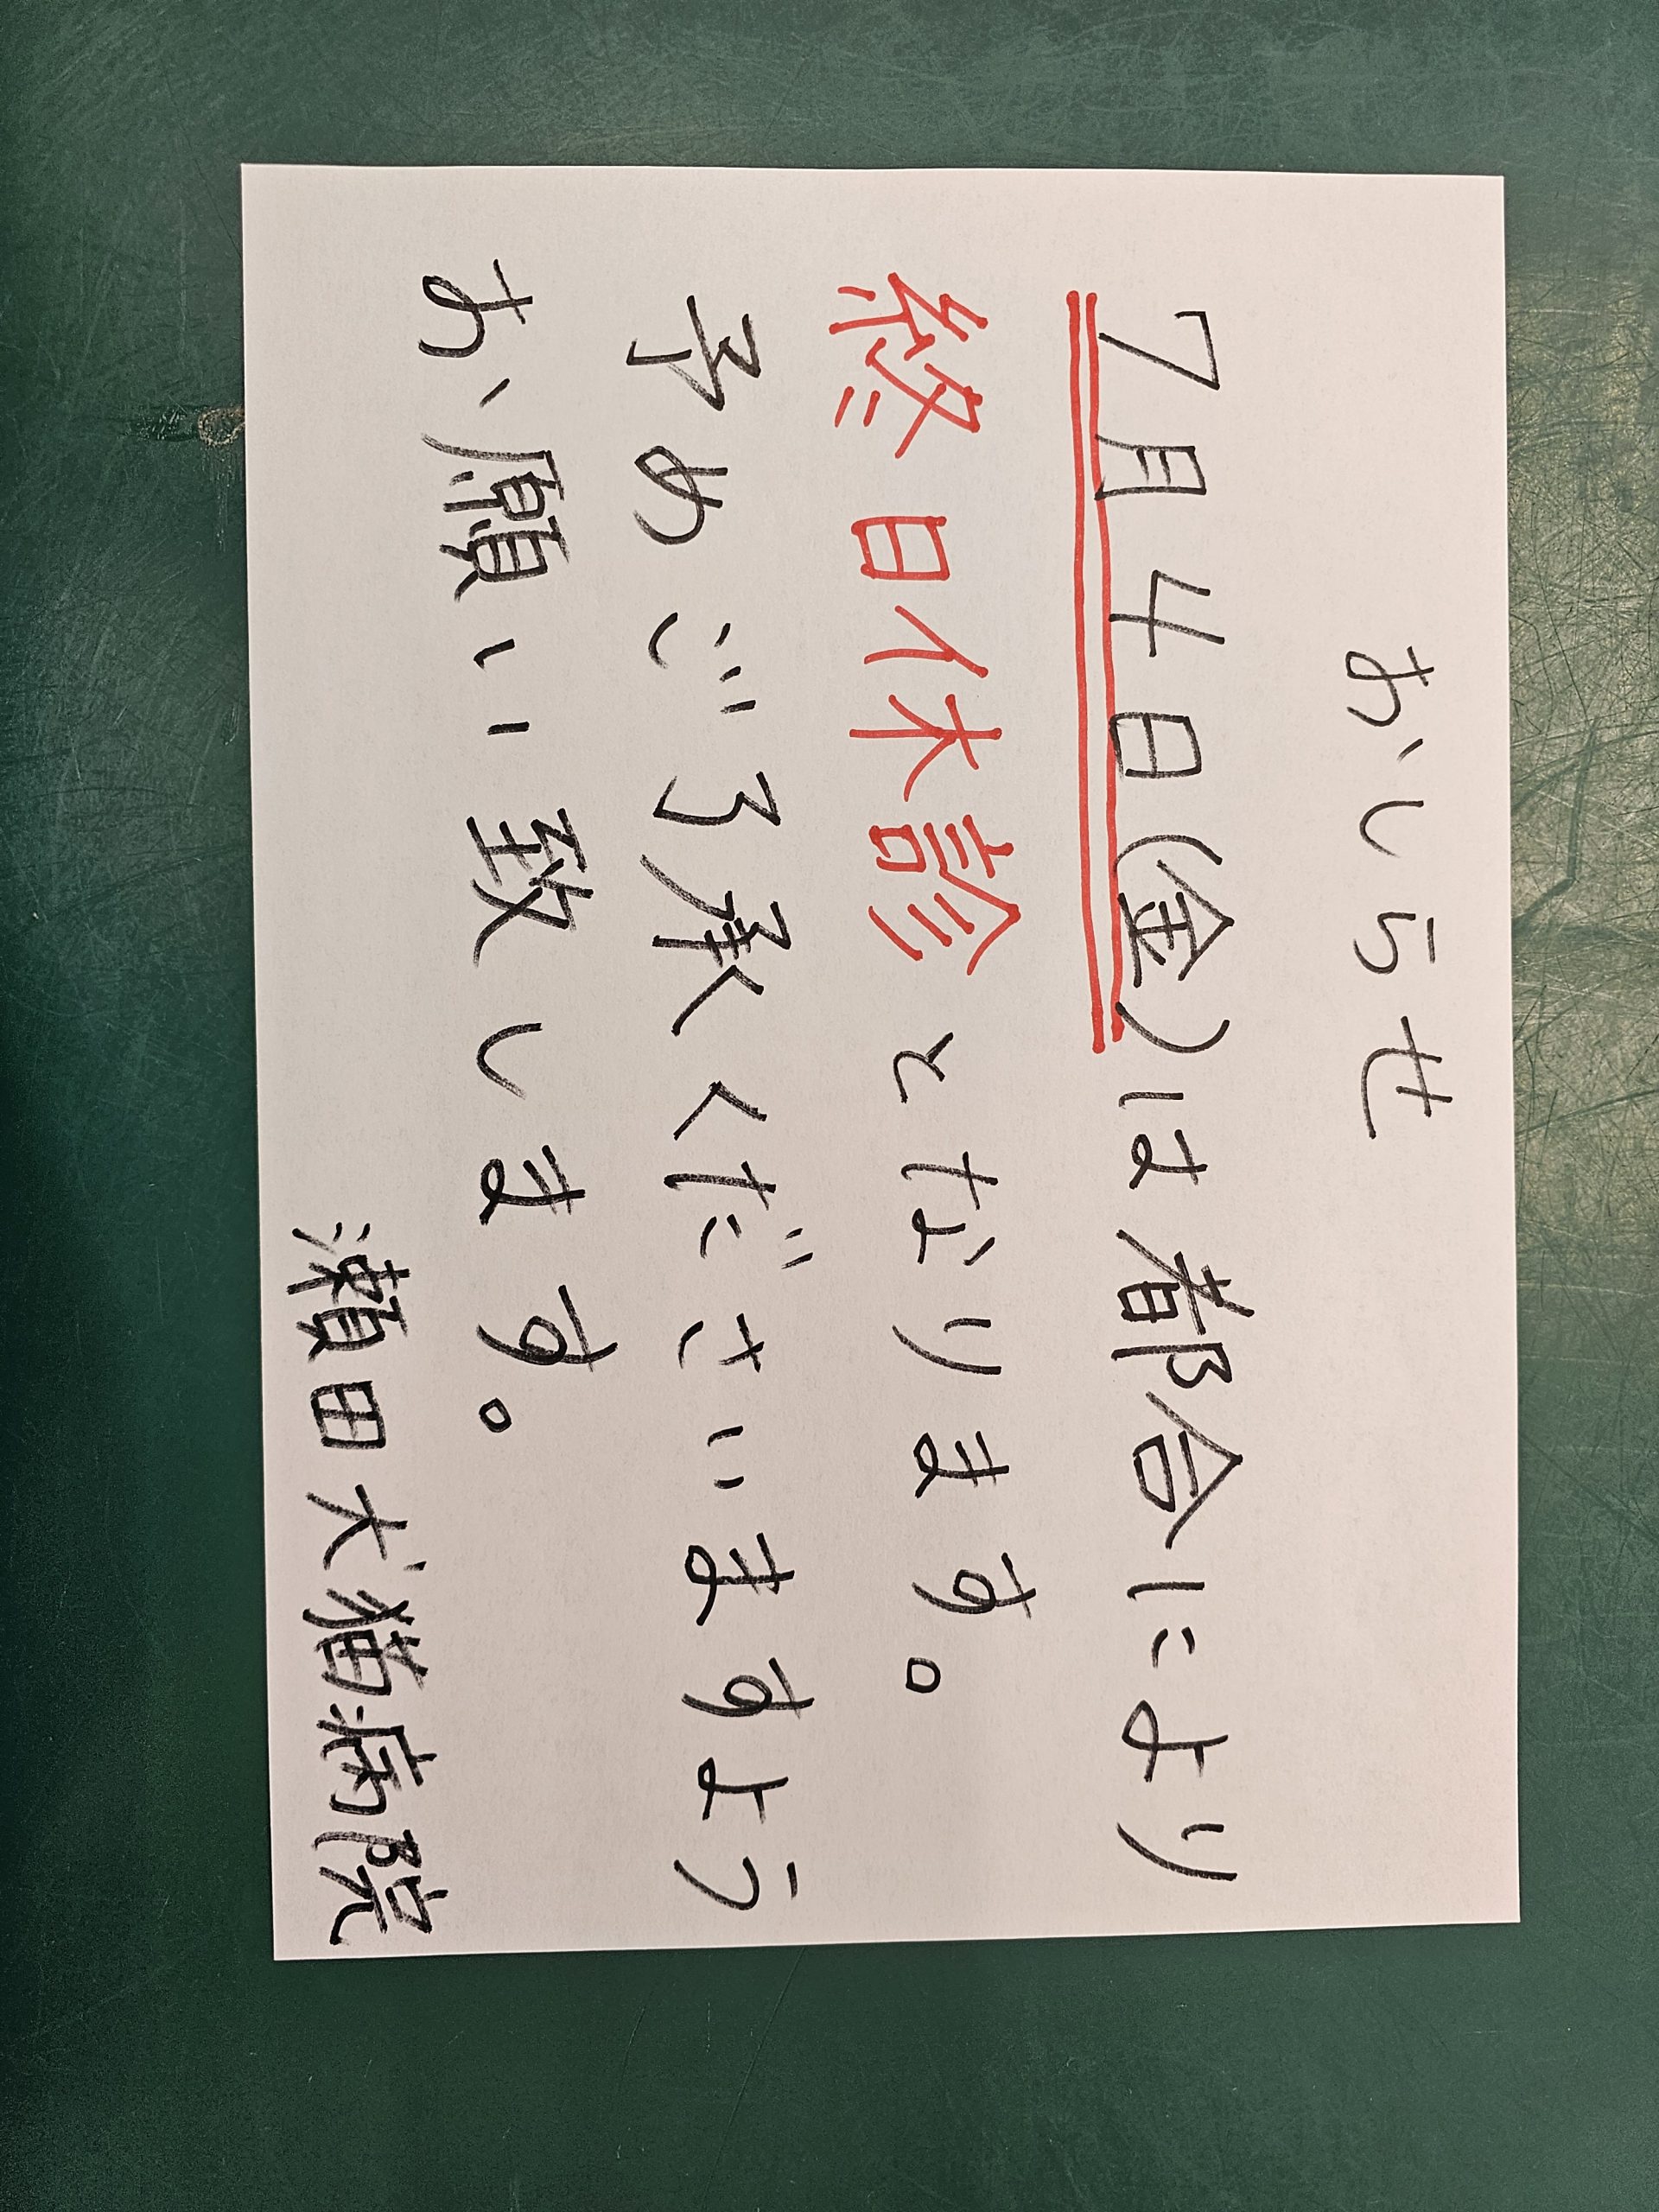 おしらせ
7月4日(金)は都合により
終日休診となります。
予めご了承くださいますよう
お願い致します。
瀬田犬猫病院